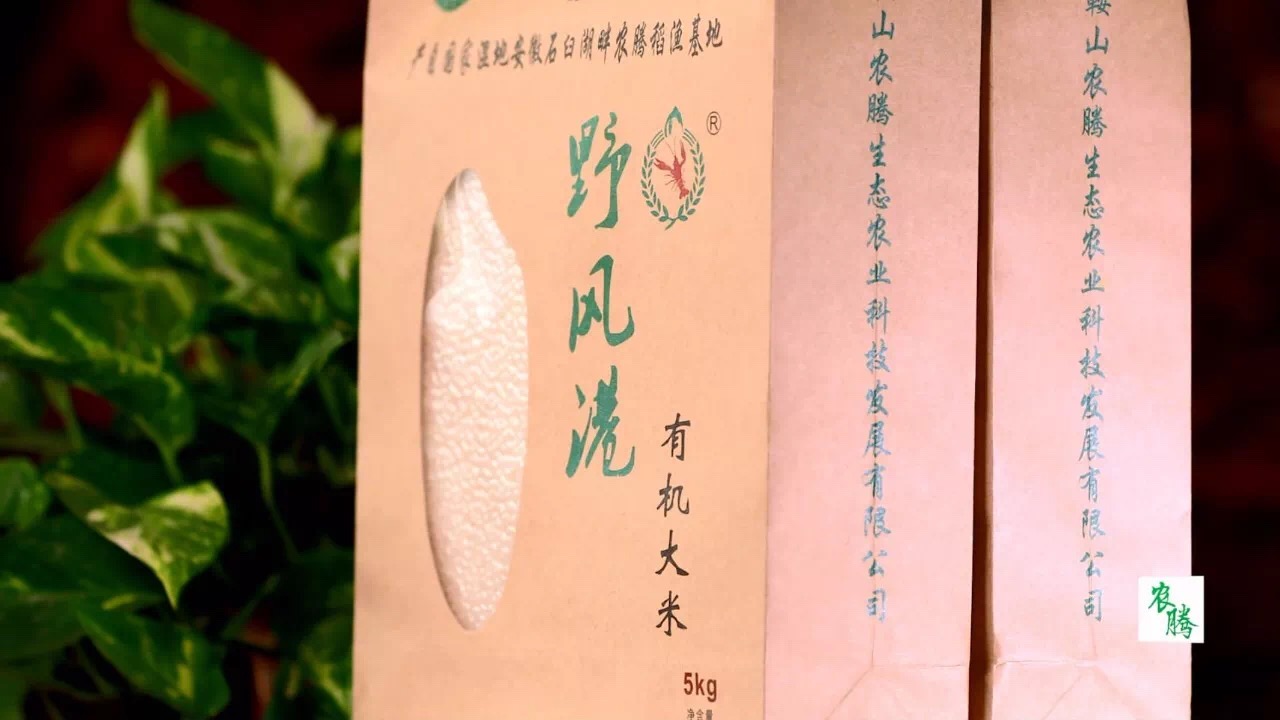 产自国家湿地安徽石臼湖畔农腾稻渔基地
野风港
®
有机大米
5kg
净含量
山农腾生态农业科技发展有限公司
鞍山农腾生态农业科技发展有限公司
农腾